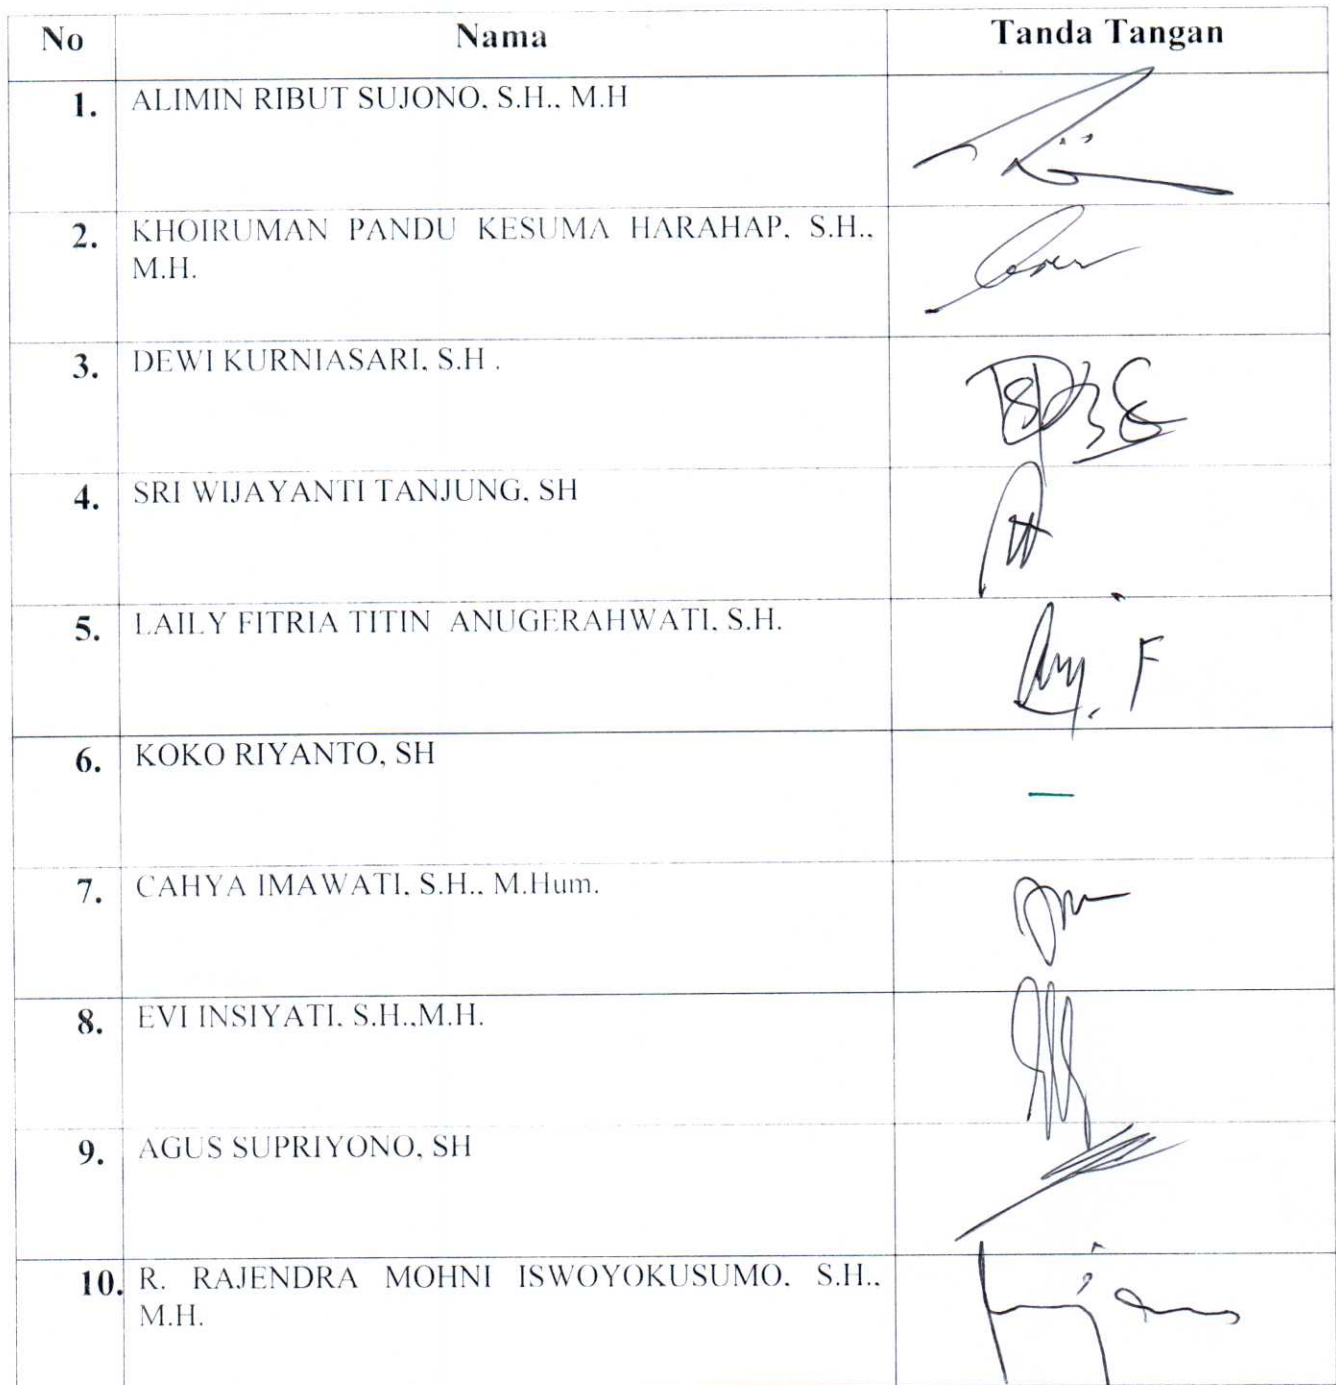 No Nama Tanda Tangan
1. ALIMIN RIBUT SUJONO, S.H., M.H
2. KHOIRUMAN PANDU KESUMA HARAHAP, S.H.,
M.H.
3. DEWI KURNIASARI, S.H .
4. SRI WIJAYANTI TANJUNG, SH
5. LAILY FITRIA TITIN ANUGERAHWATI, S.H.
6. KOKO RIYANTO, SH
7. CAHYA IMAWATI, S.H., M.Hum.
8. EVI INSIYATI, S.H.,M.H.
9. AGUS SUPRIYONO, SH
10. R. RAJENDRA MOHNI ISWOYOKUSUMO, S.H.,
M.H.